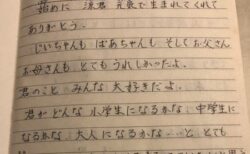 始めに 涼君 元気で生まれてくれて
ありがとう。
じいちゃんも ばあちゃんも そしてお父さん
お母さんも とてもうれしかったよ。
君のこと みんな 大好きだよ。
君が どんな 小学生に なるかな 中学生に
なるかな 大人に なるかな…と とても